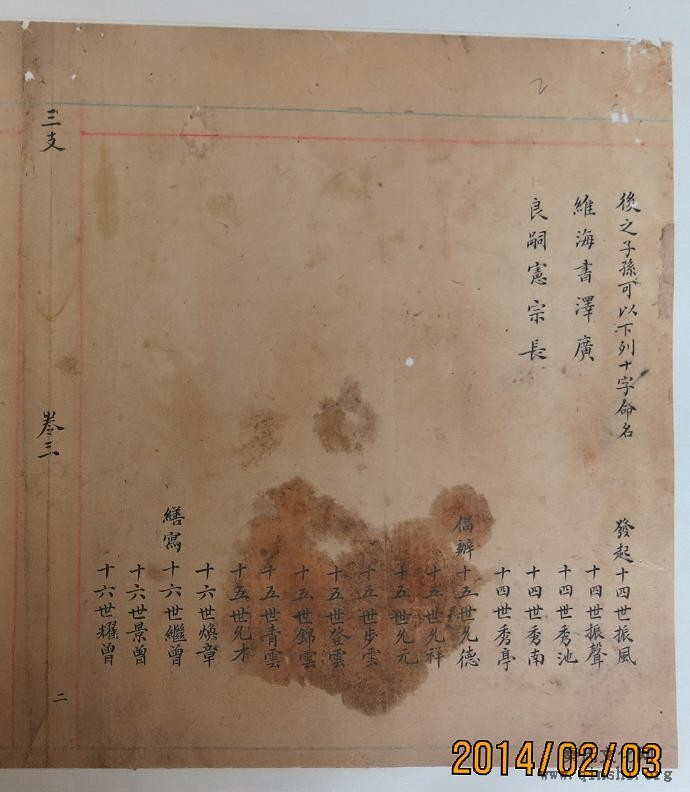 後之子孫可以下列十字命名
維海書澤廣
良嗣憲宗長
發起十四世振風
十四世振聲
十四世秀池
十四世秀南
十四世秀亭
倡辦十五世允德
十五世允祥
十五世允元
十五世步雲
十五世登雲
十五世錦雲
十五世青雲
十五世允才
十六世煥章
繕寫十六世繼曾
十六世景曾
十六世耀曾
三支
卷三
二
2
2014/02/03
www.qinshi.org